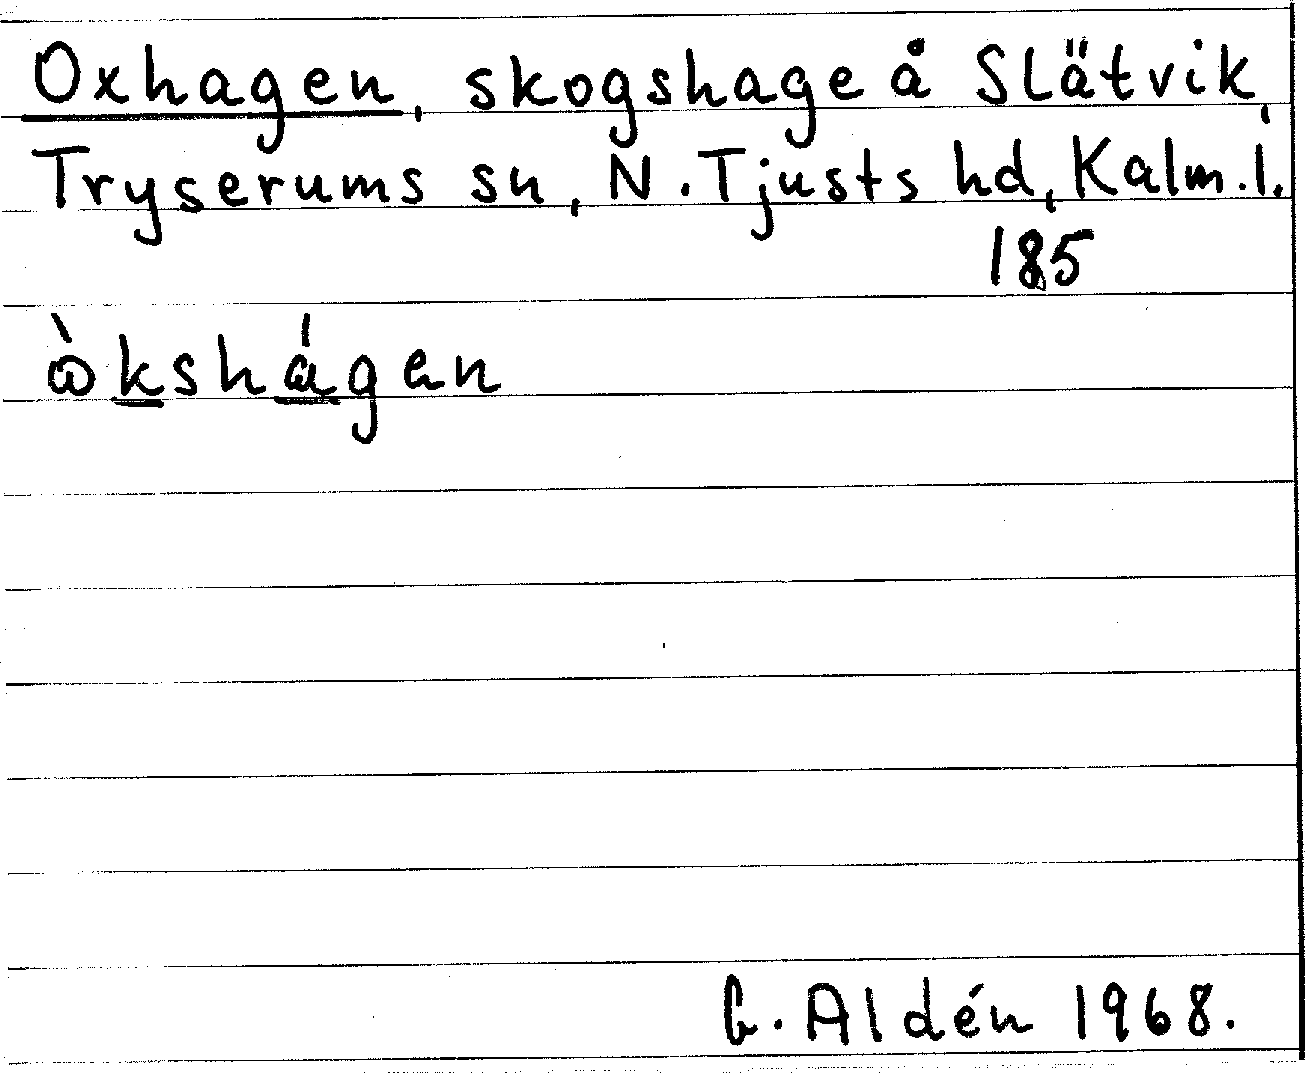 Oxhagen, skogshage å Slätvik,
Tryserums sn, N. Tjusts hd, Kalm. l.
185
òkshágen
G. Aldén 1968.